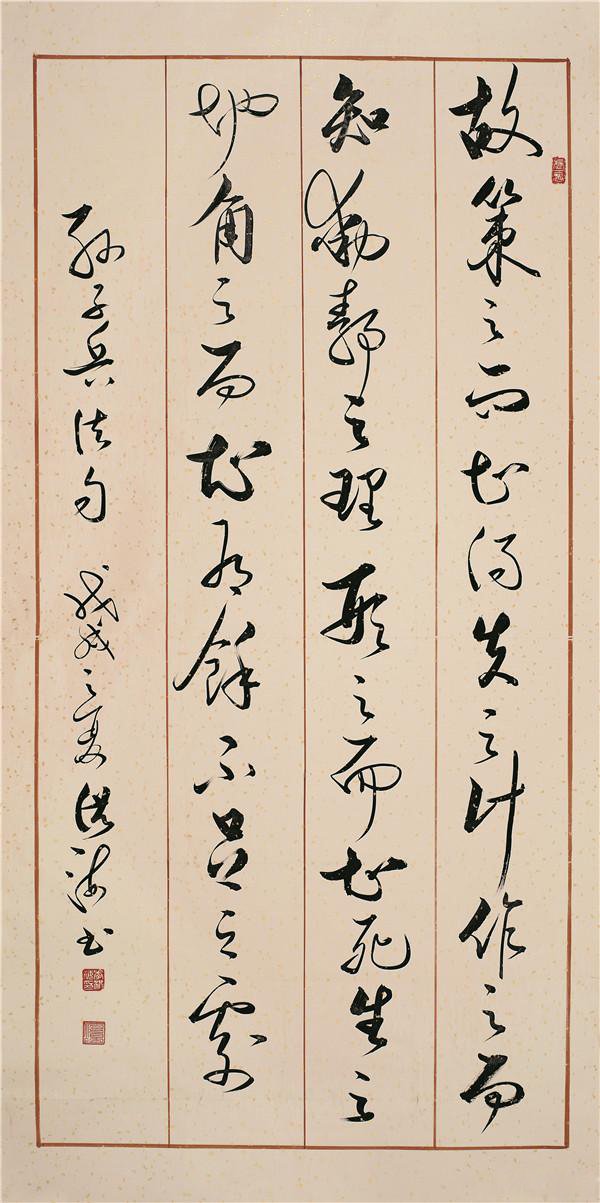 故策之而知得失之計作之而
知動靜之理形之而知死生之
地角之而知有餘不足之處
孫子兵法句 戊戌之夏 書